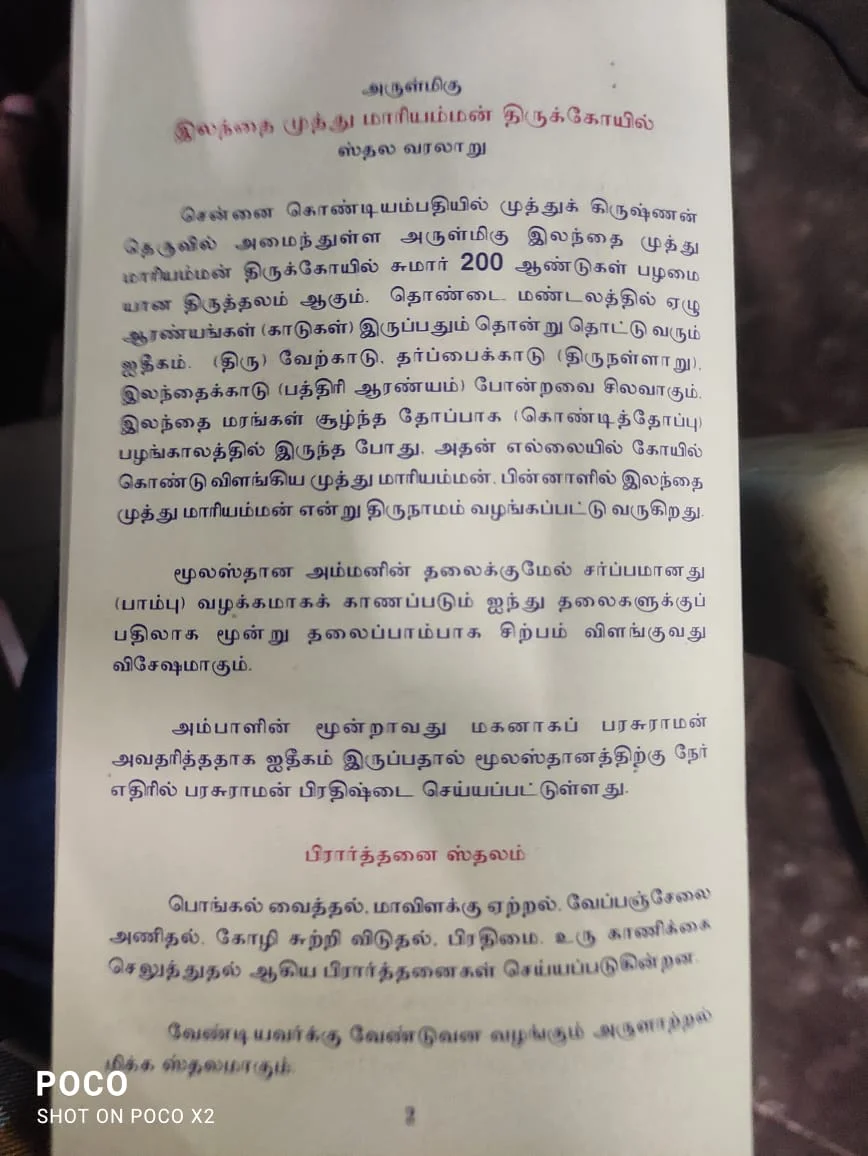 அருள்மிகு
இலந்தை முத்து மாரியம்மன் திருக்கோயில்
ஸ்தல வரலாறு
சென்னை கொண்டியம்பதியில் முத்துக் கிருஷ்ணன்
தெருவில் அமைந்துள்ள அருள்மிகு இலந்தை முத்து
மாரியம்மன் திருக்கோயில் சுமார் 200 ஆண்டுகள் பழமை
யான திருத்தலம் ஆகும். தொண்டை மண்டலத்தில் ஏழு
ஆரண்யங்கள் (காடுகள்) இருப்பதும் தொன்று தொட்டு வரும்
ஐதீகம். (திரு) வேற்காடு, தர்ப்பைக்காடு (திருநள்ளாறு),
இலந்தைக்காடு (பத்திரி ஆரண்யம்) போன்றவை சிலவாகும்.
இலந்தை மரங்கள் சூழ்ந்த தோப்பாக (கொண்டித்தோப்பு)
பழங்காலத்தில் இருந்த போது, அதன் எல்லையில் கோயில்
கொண்டு விளங்கிய முத்து மாரியம்மன், பின்னாளில் இலந்தை
முத்து மாரியம்மன் என்று திருநாமம் வழங்கப்பட்டு வருகிறது.
மூலஸ்தான அம்மனின் தலைக்குமேல் சர்ப்பமானது
(பாம்பு) வழக்கமாகக் காணப்படும் ஐந்து தலைகளுக்குப்
பதிலாக மூன்று தலைப்பாம்பாக சிற்பம் விளங்குவது
விசேஷமாகும்.
அம்பாளின் மூன்றாவது மகனாகப் பரசுராமன்
அவதரித்ததாக ஐதீகம் இருப்பதால் மூலஸ்தானத்திற்கு நேர்
எதிரில் பரசுராமன் பிரதிஷ்டை செய்யப்பட்டுள்ளது.
பிரார்த்தனை ஸ்தலம்
பொங்கல் வைத்தல், மாவிளக்கு ஏற்றல், வேப்பஞ்சேலை
அணிதல், கோழி சுற்றி விடுதல், பிரதிமை, உரு காணிக்கை
செலுத்துதல் ஆகிய பிரார்த்தனைகள் செய்யப்படுகின்றன.
வேண்டியவர்க்கு வேண்டுவன வழங்கும் அருளாற்றல்
மிக்க ஸ்தலமாகும்.
2
POCO
SHOT ON POCO X2